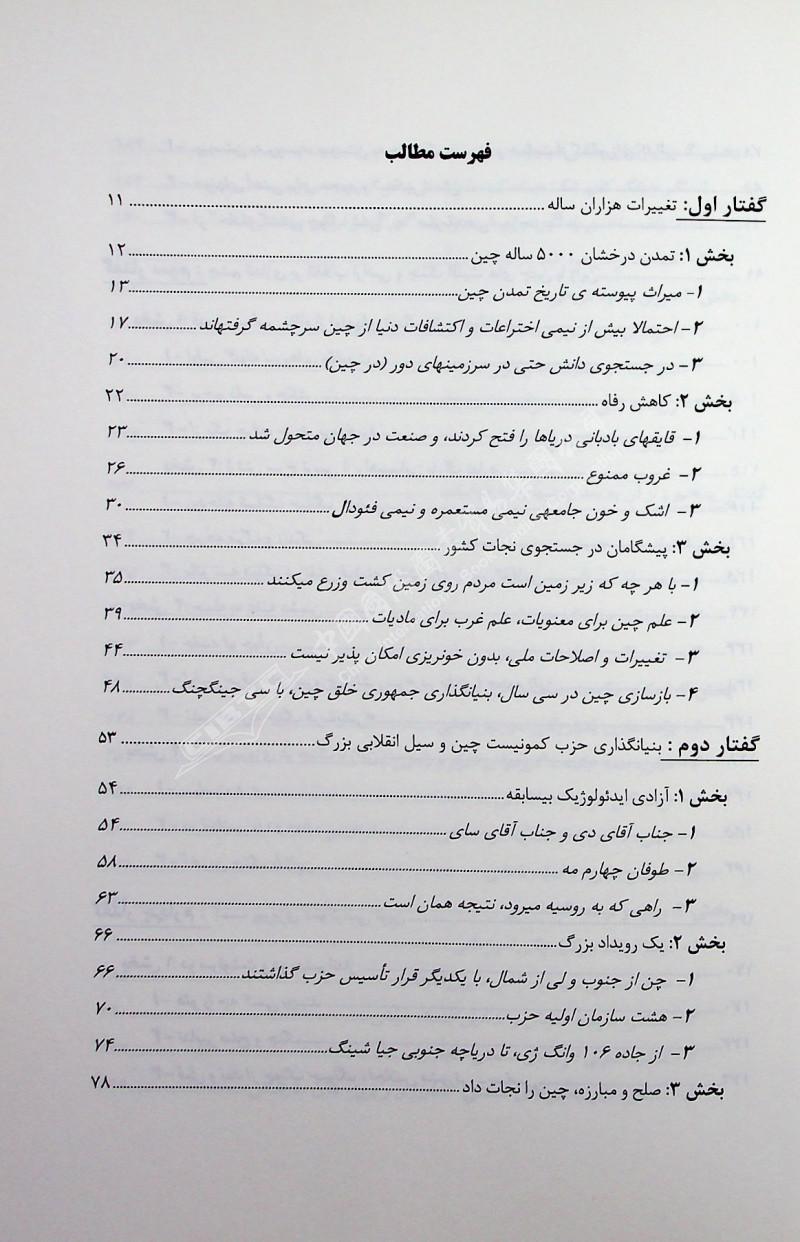 فهرست مطالب
گفتار اول: تغییرات هزاران ساله ........ ۱۱
بخش ۱: تمدن درخشان ۵۰۰۰ ساله چین ........ ۱۲
۱- میراث پیوسته ی تاریخ تمدن چین ........ ۱۳
۲- احتمالا بیش از نیمی اختراعات و اکتشافات دنیا از چین سرچشمه گرفتهاند ........ ۱۷
۳- در جستجوی دانش حتی در سرزمینهای دور (در چین) ........ ۲۰
بخش ۲: کاهش رفاه ........ ۲۲
۱- قایقهای بادبانی دریاها را فتح کردند، و صنعت در جهان متحول شد ........ ۲۳
۲- غروب ممنوع ........ ۲۶
۳- اشک و خون جامعهی نیمی مستعمره و نیمی فئودال ........ ۳۰
بخش ۳: پیشگامان در جستجوی نجات کشور ........ ۳۴
۱- با هر چه که زیر زمین است مردم روی زمین کشت وزرع میکنند ........ ۳۵
۲- علم چین برای معنویات، علم غرب برای مادیات ........ ۳۹
۳- تغییرات و اصلاحات ملی، بدون خونریزی امکان پذیر نیست ........ ۴۴
۴- بازسازی چین در سی سال، بنیانگذاری جمهوری خلق چین، با سی جینگچنگ ........ ۴۸
گفتار دوم : بنیانگذاری حزب کمونیست چین و سیل انقلابی بزرگ ........ ۵۳
بخش ۱: آزادی ایدئولوژیک بیسابقه ........ ۵۴
۱- جناب آقای دی و جناب آقای سای ........ ۵۴
۲- طوفان چهارم مه ........ ۵۸
۳- راهی که به روسیه میرود، نتیجه همان است ........ ۶۳
بخش ۲: یک رویداد بزرگ ........ ۶۶
۱- چن از جنوب و لی از شمال، با یکدیگر قرار تأسیس حزب گذاشتند ........ ۶۶
۲- هشت سازمان اولیه حزب ........ ۷۰
۳- از جاده ۱۰۶ وانگ ژی، تا دریاچه جنوبی جیا شینگ ........ ۷۴
بخش ۳: صلح و مبارزه، چین را نجات داد ........ ۷۸